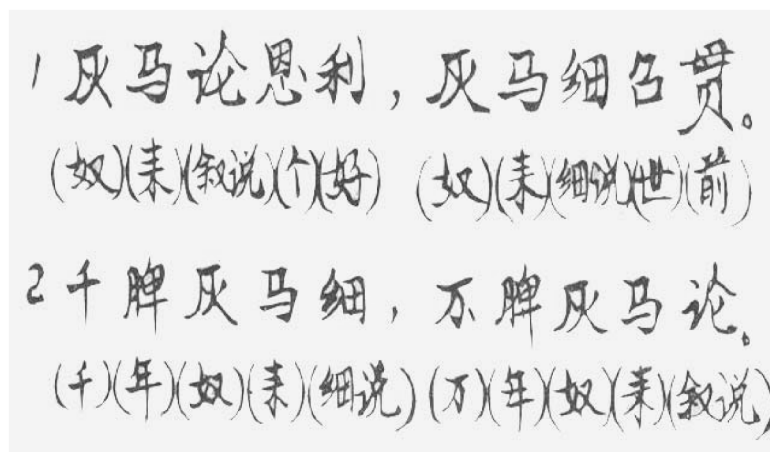 1 灰马论恩利，灰马细召贯。
(奴)(来)(叙说)(个)(好) (奴)(来)(细说)(世)(前)
2 千脾灰马细，万脾灰马论。
(千)(年)(奴)(来)(细说)(万)(年)(奴)(来)(叙说)